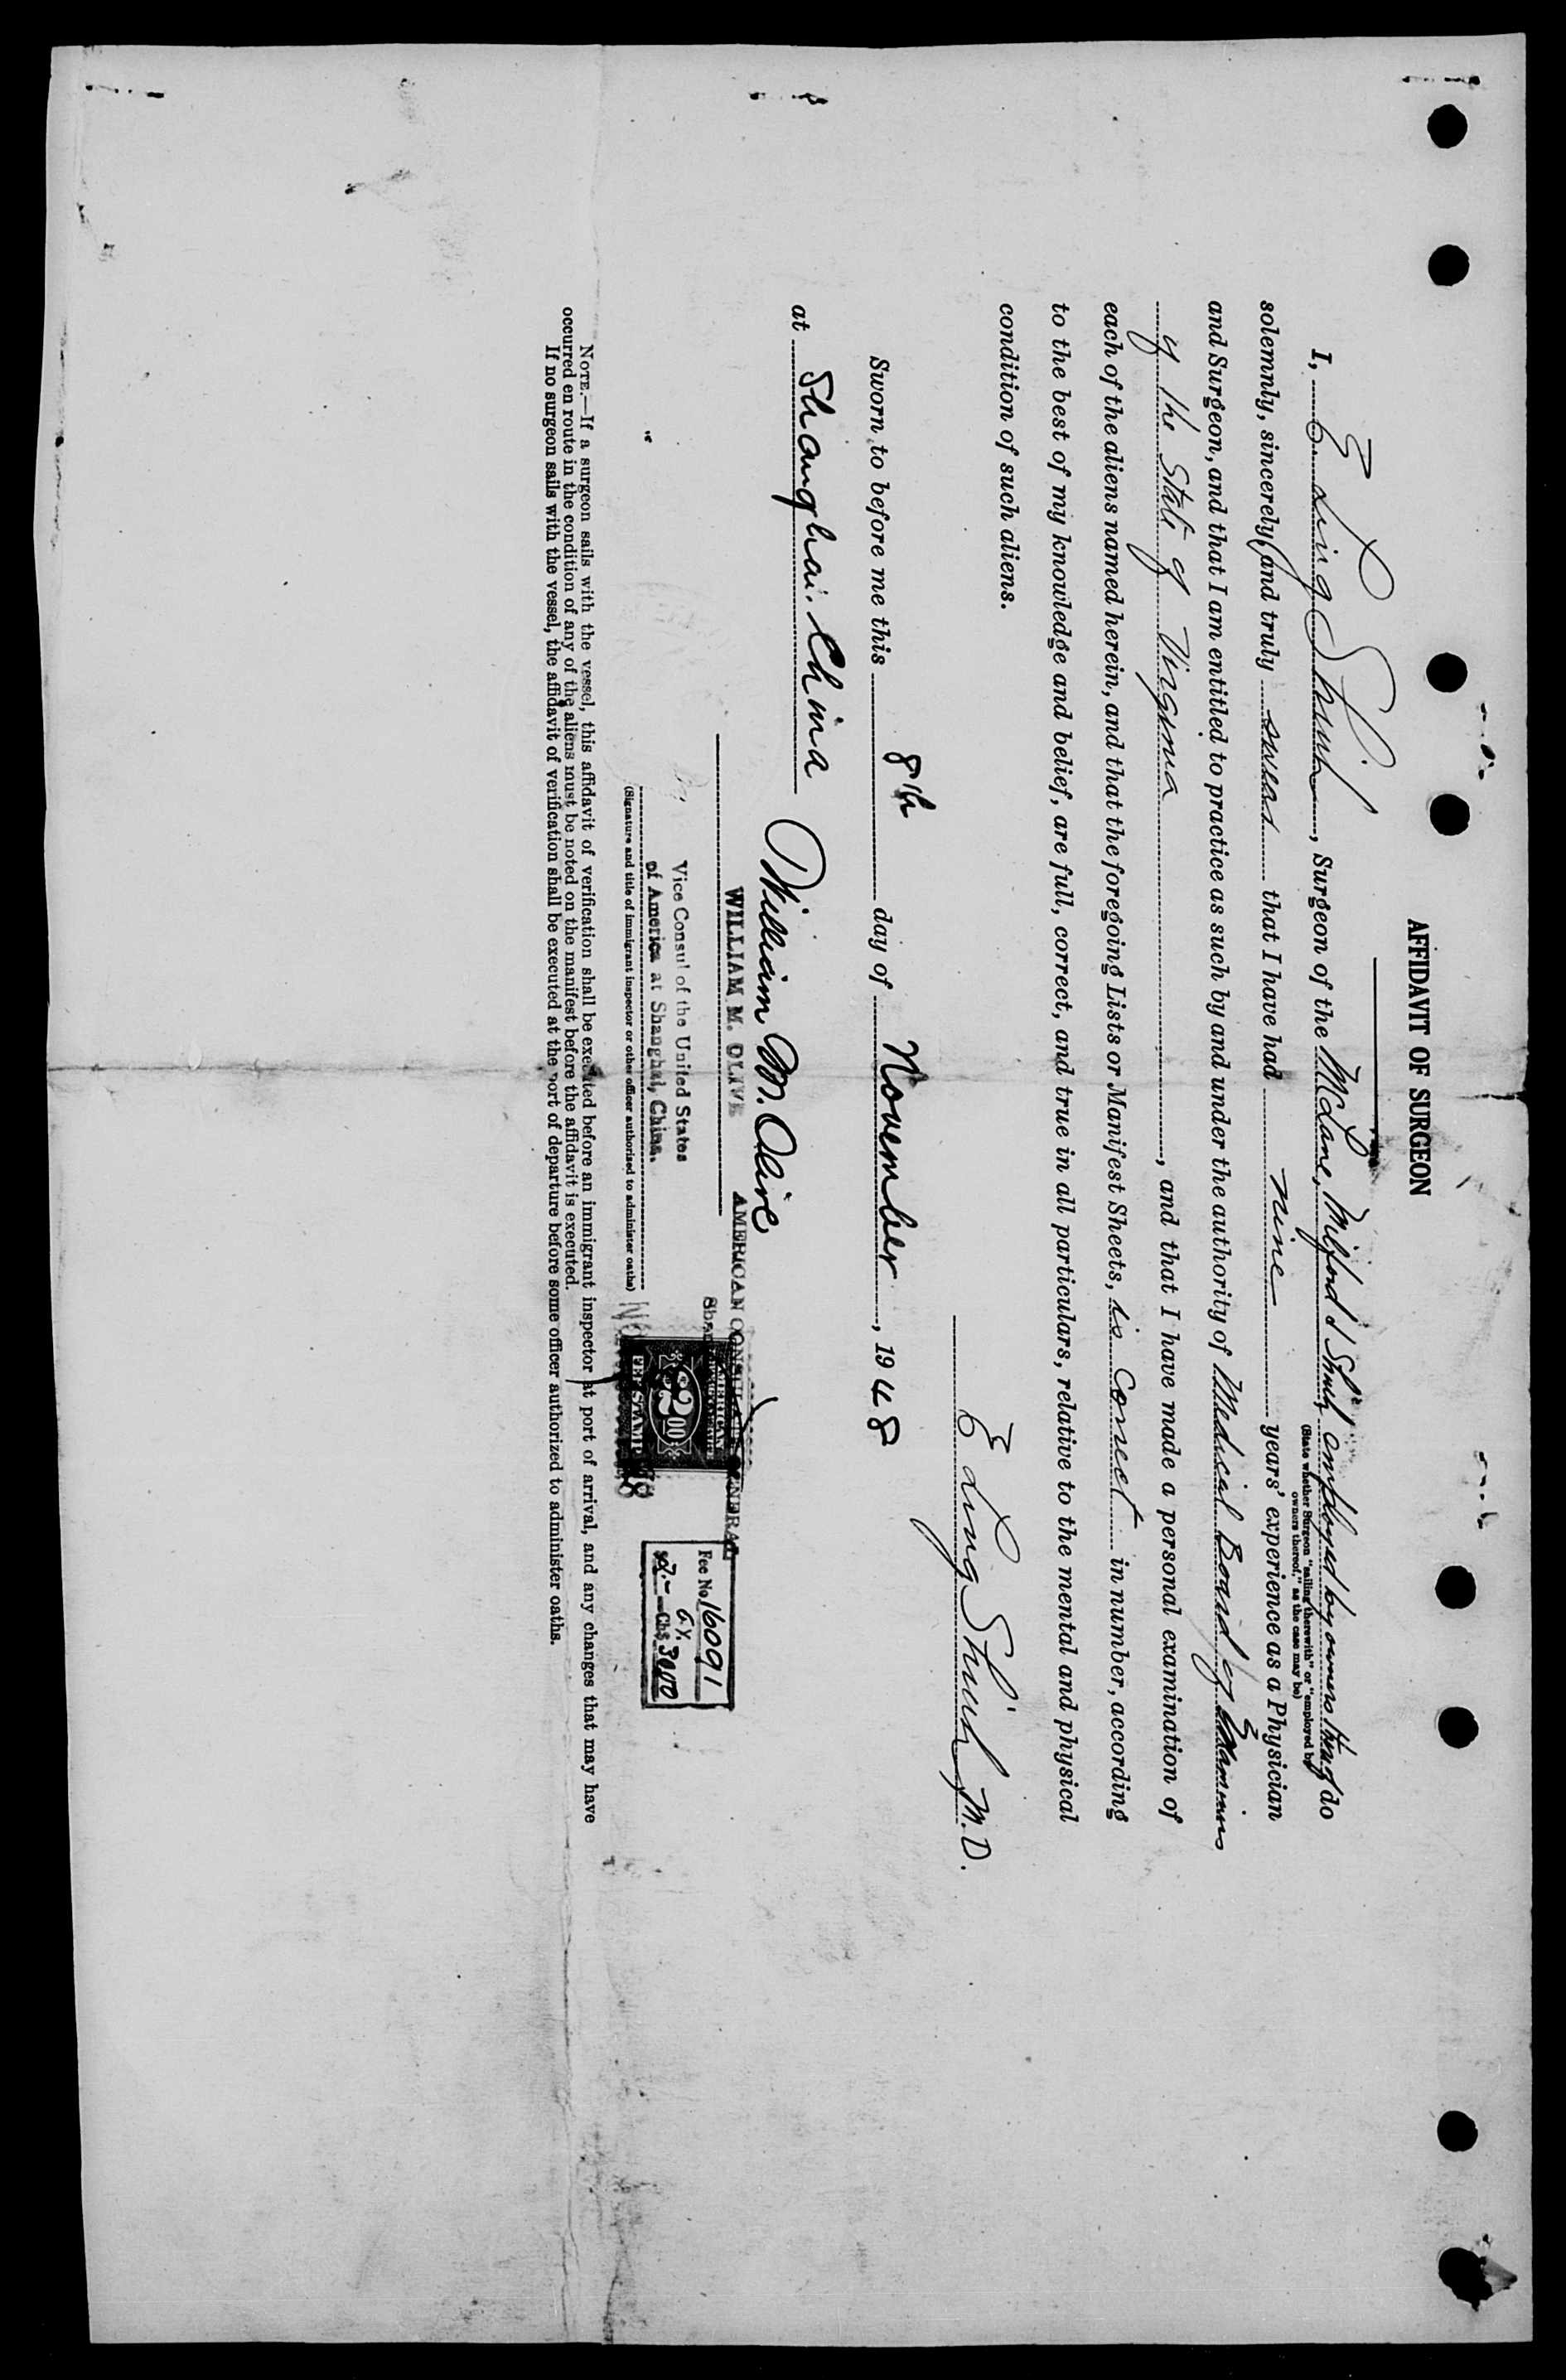 AFFIDAVIT OF SURGEON
I, E Ling Shuh, Surgeon of the McLane, Milford Shuh, employed by owners thereof do
(State whether Surgeon "sailing therewith" or "employed by
owners thereof," as the case may be)
solemnly, sincerely, and truly swear that I have had nine years' experience as a Physician
and Surgeon, and that I am entitled to practice as such by and under the authority of Medical Board of Examiners
of the State of Virginia, and that I have made a personal examination of
each of the aliens named herein, and that the foregoing Lists or Manifest Sheets, is correct in number, according
to the best of my knowledge and belief, are full, correct, and true in all particulars, relative to the mental and physical
condition of such aliens.
E Ling Shuh M.D.
Sworn to before me this 8th day of November, 1948
at Shanghai. China
William M. Olive
WILLIAM M. OLIVE
AMERICAN CONSULATE GENERAL
Vice Consul of the United States
of America at Shanghai, China.
(Signature and title of immigrant inspector or other officer authorized to administer oaths)
AMERICAN
$2.00
FEE STAMP
Fee No. 16091
NOTE.—If a surgeon sails with the vessel, this affidavit of verification shall be executed before an immigrant inspector at port of arrival, and any changes that may have
occurred en route in the condition of any of the aliens must be noted on the manifest before the affidavit is executed.
If no surgeon sails with the vessel, the affidavit of verification shall be executed at the port of departure before some officer authorized to administer oaths.